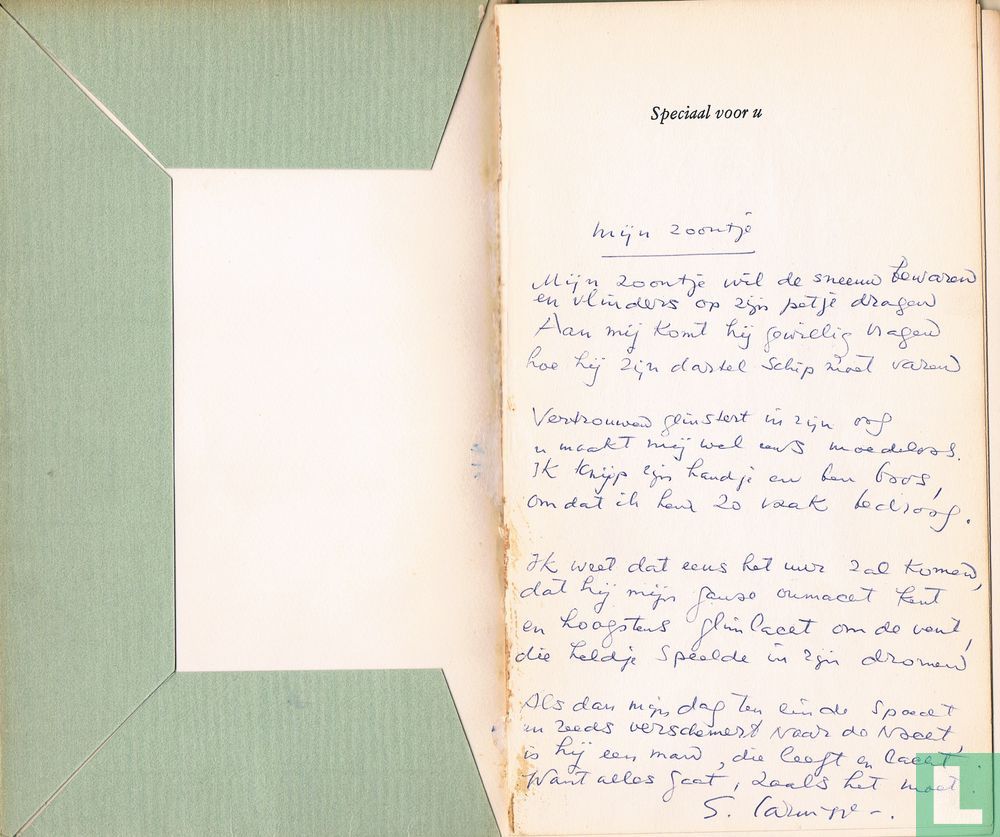 Speciaal voor u
Mijn zoontje
Mijn zoontje wil de sneeuw bewaren
en vlinders op zijn petje dragen
Aan mij komt hij gewillig vragen
hoe hij zijn dartel schip moet varen
Vertrouwen glinstert in zijn oog
'n maakt mij wel eens moedeloos.
Ik knijp zijn handje en ben boos,
omdat ik hem zo vaak bedroog.
Ik weet dat eens het uur zal komen,
dat hij mijn ganse onmacht kent
en hoogstens glimlacht om de vent,
die heldje speelde in zijn dromen
Als dan mijn dag ten einde spoedt
en reeds verschemert naar de nacht,
is hij een man, die leeft en lacht.
Want alles gaat, zoals het moet.
S. Carmiggelt.
L